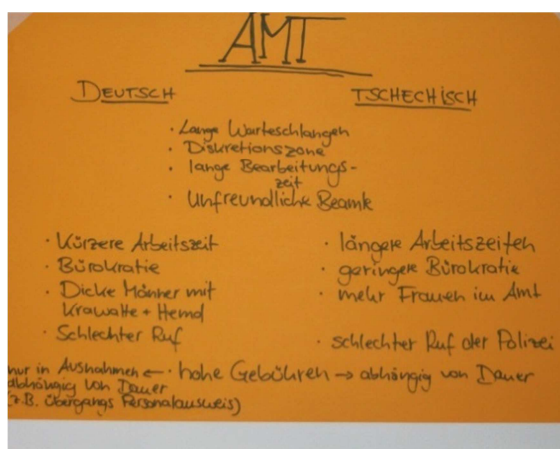 AMT
DEUTSCH
TSCHECHISCH
· Lange Warteschlangen
· Diskretionszone
· lange Bearbeitungs-
zeit
· Unfreundliche Beamte
· Kürzere Arbeitszeit
· Bürokratie
· Dicke Männer mit
Krawatte + Hemd
· Schlechter Ruf
· längere Arbeitszeiten
· geringere Bürokratie
· mehr Frauen im Amt
· schlechter Ruf der Polizei
nur in Ausnahmen ← · hohe Gebühren → abhängig von Dauer
abhängig von Dauer
(z.B. übergangs Personalausweis)